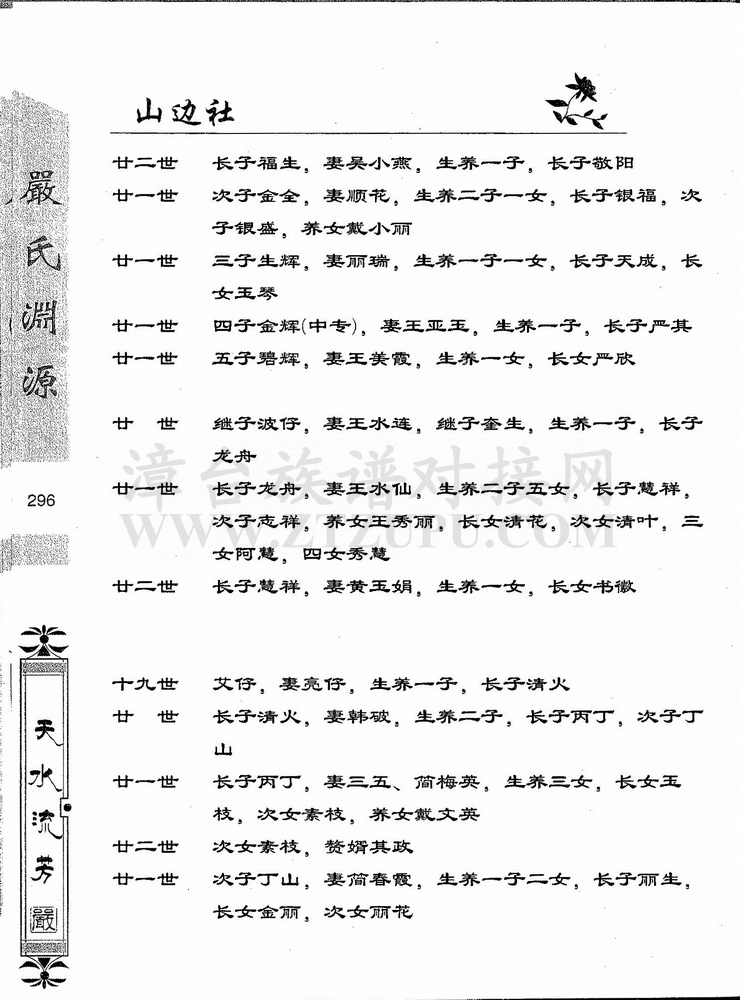 山边社
廿二世 长子福生，妻吴小燕，生养一子，长子敬阳
廿一世 次子金全，妻顺花，生养二子一女，长子银福，次
子银盛，养女戴小丽
廿一世 三子生辉，妻丽瑞，生养一子一女，长子天成，长
女玉琴
廿一世 四子金辉(中专)，妻王亚玉，生养一子，长子严其
廿一世 五子碧辉，妻王美霞，生养一女，长女严欣
廿 世 继子波仔，妻王水连，继子奎生，生养一子，长子
龙舟
廿一世 长子龙舟，妻王水仙，生养二子五女，长子慧祥，
次子志祥，养女王秀丽，长女清花，次女清叶，三
女阿慧，四女秀慧
廿二世 长子慧祥，妻黄玉娟，生养一女，长女书徽
十九世 艾仔，妻亮仔，生养一子，长子清火
廿 世 长子清火，妻韩破，生养二子，长子丙丁，次子丁
山
廿一世 长子丙丁，妻三五、简梅英，生养三女，长女玉
枝，次女素枝，养女戴文英
廿二世 次女素枝，赘婿其政
廿一世 次子丁山，妻简春霞，生养一子二女，长子丽生，
长女金丽，次女丽花
嚴氏淵源
296
天水流芳
嚴
漳台族谱对接网
WWW.ZTZUPU.COM